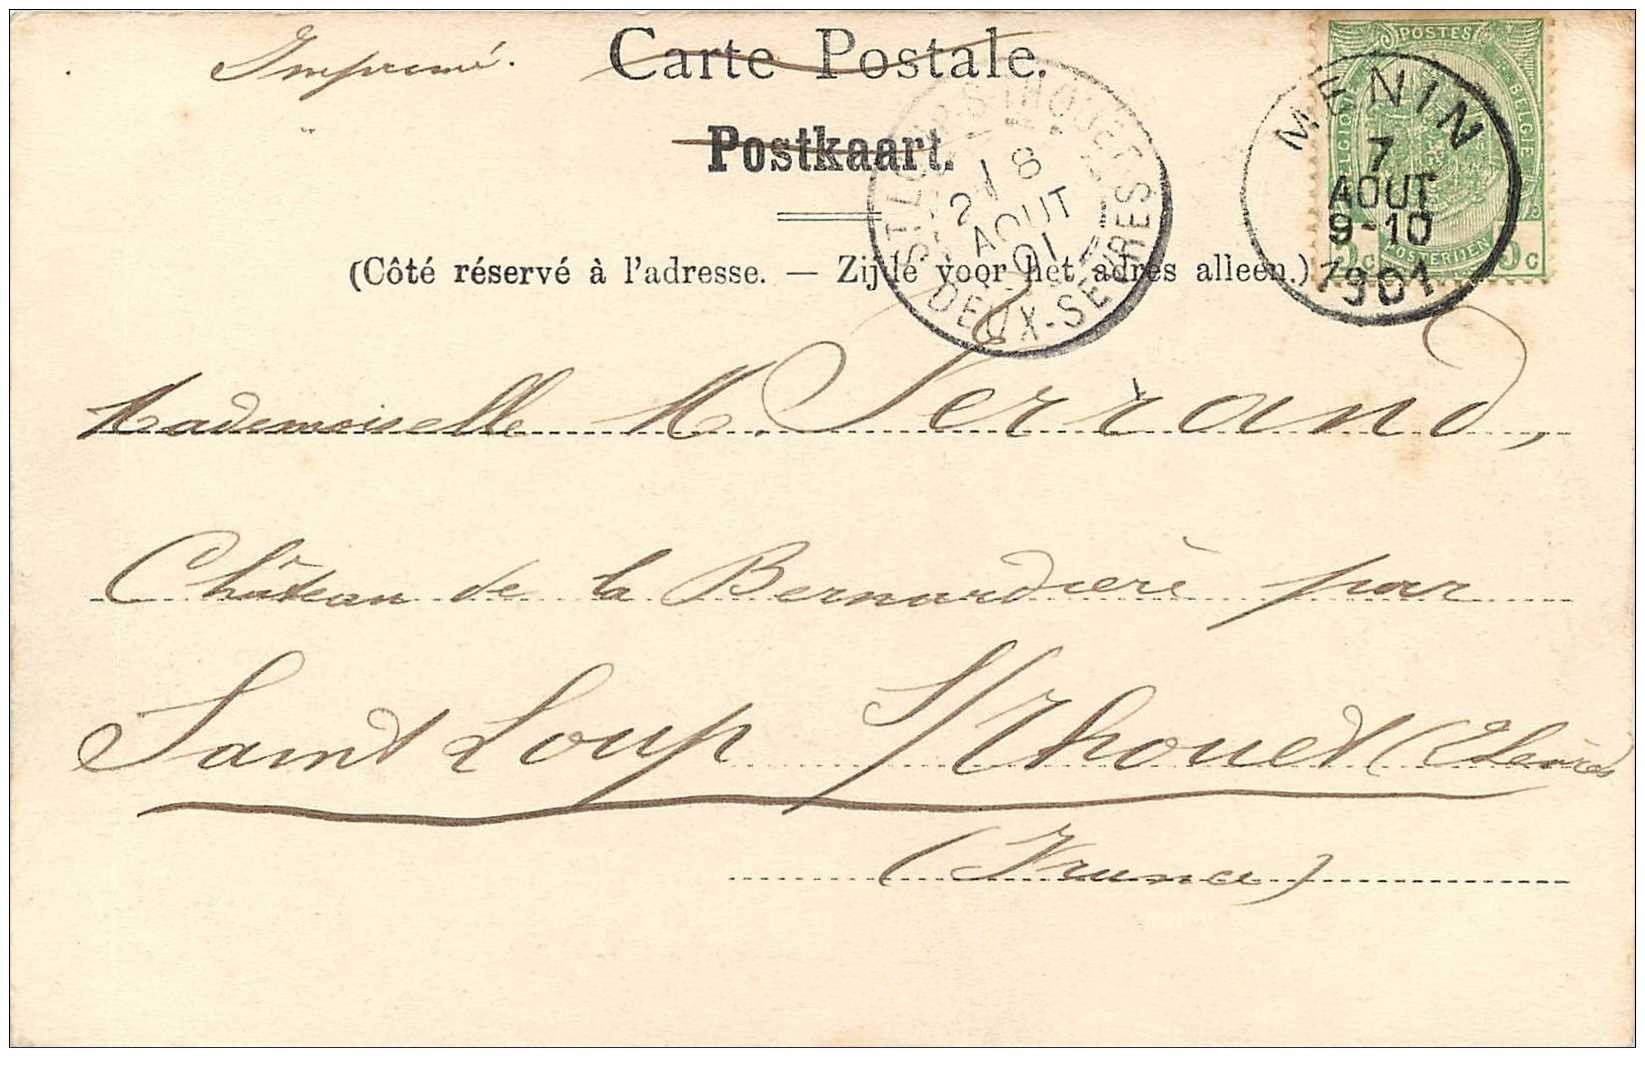 Imprimé.
Carte Postale.
Postkaart.
(Côté réservé à l'adresse. — Zijde voor het adres alleen.)
POSTES
BELGIQUE BELGIE
5c 5c
MENIN
7
AOUT
9-10
1901
ST LOUP-S-THOUET
18
2 AOUT
01
DEUX-SEVRES
Mademoiselle M. Serrand,
Château de la Bernardière par
Saint Loup S/Thouet (2 Sèvres
(France)